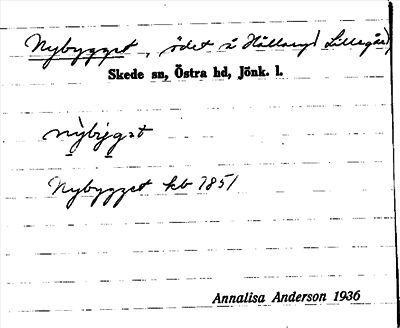 Nybygget, ödet å Hällaryd Lillegård,
Skede sn, Östra hd, Jönk. l.
nỳbýgət
Nybygget kb 1851
Annalisa Anderson 1936